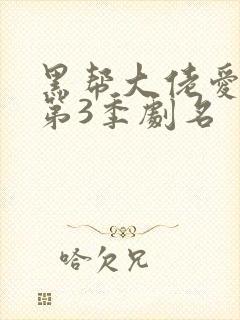 黑帮大佬爱
第3季劇名
哈欠兄